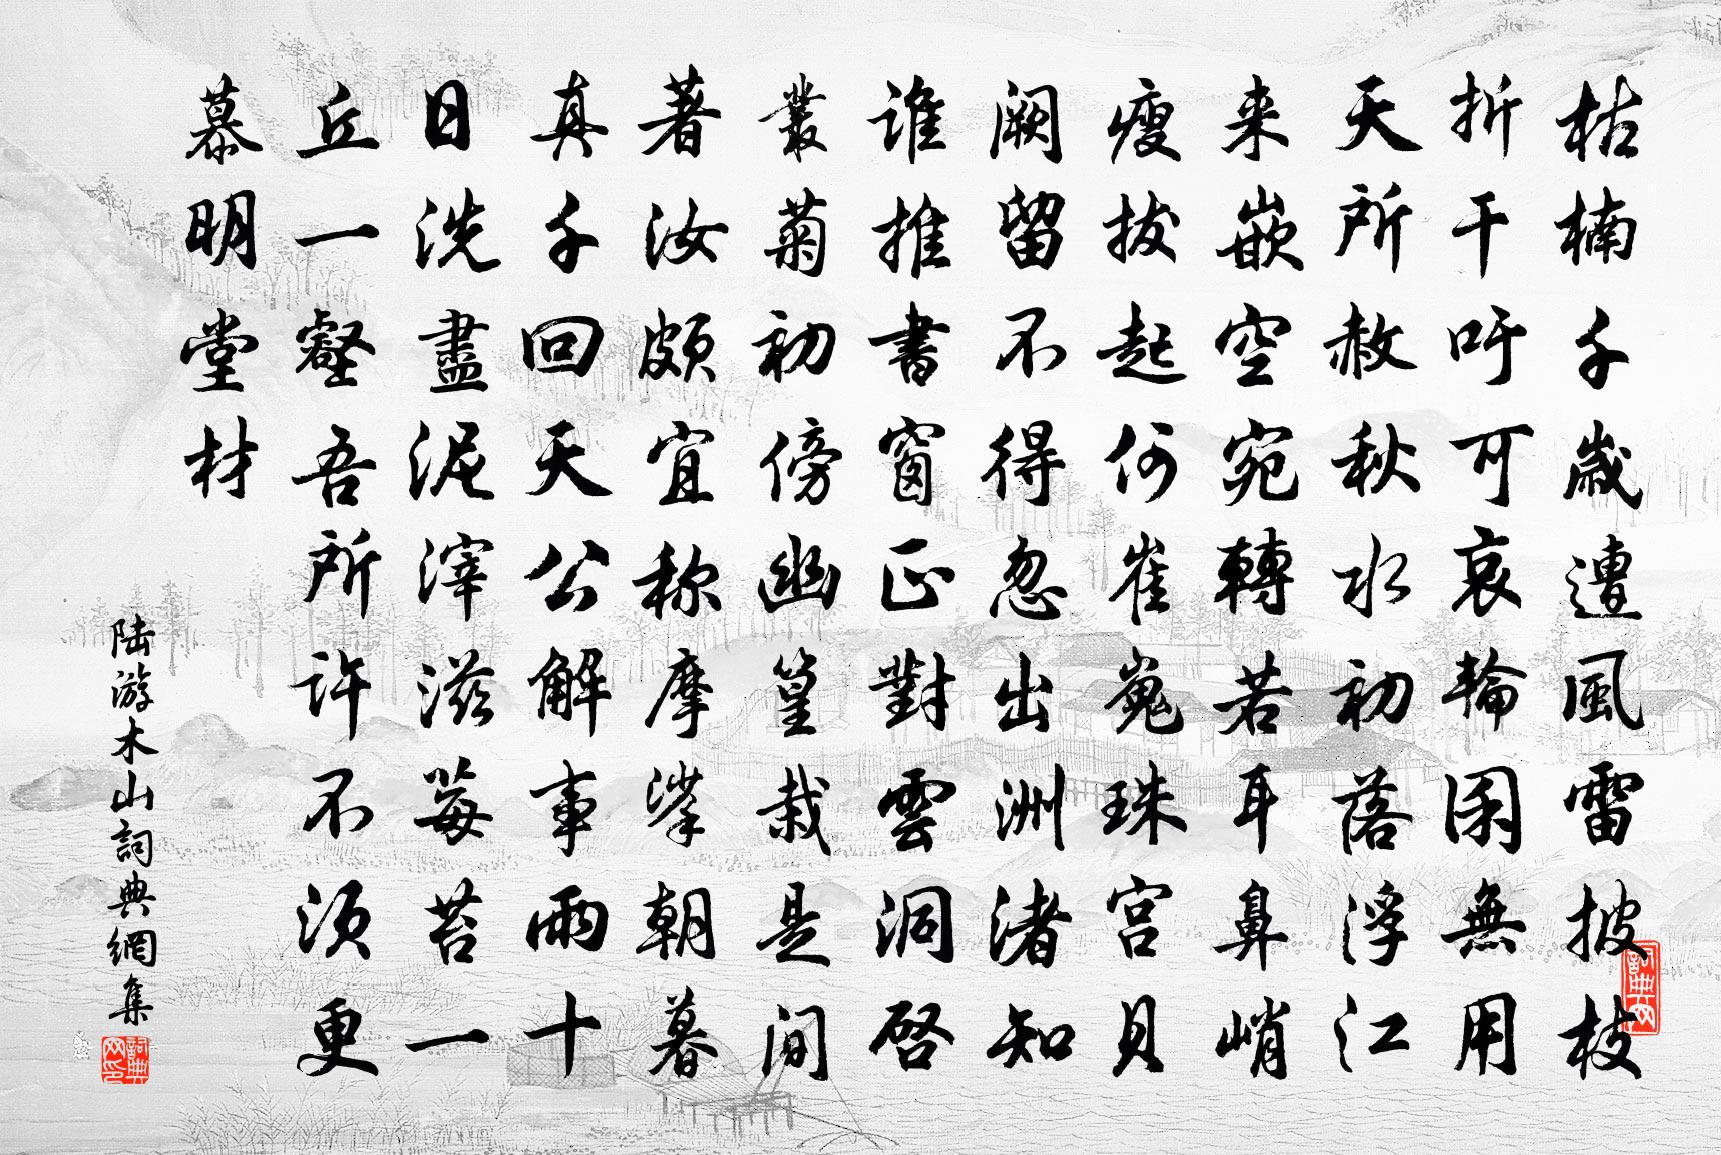 枯楠千歲遭風雷披枝
折干吁可哀輪囷無用
天所赦秋水初落浮江
来嵌空宛轉若耳鼻峭
瘦拔起何崔嵬珠宮貝
阙留不得忽出洲渚知
谁推書窗正對雲洞啓
叢菊初傍幽篁栽是间
著汝颇宜称摩挲朝暮
真千回天公解事雨十
日洗盡泥滓滋莓苔一
丘一壑吾所许不须更
慕明堂材
陆游木山詞典網集